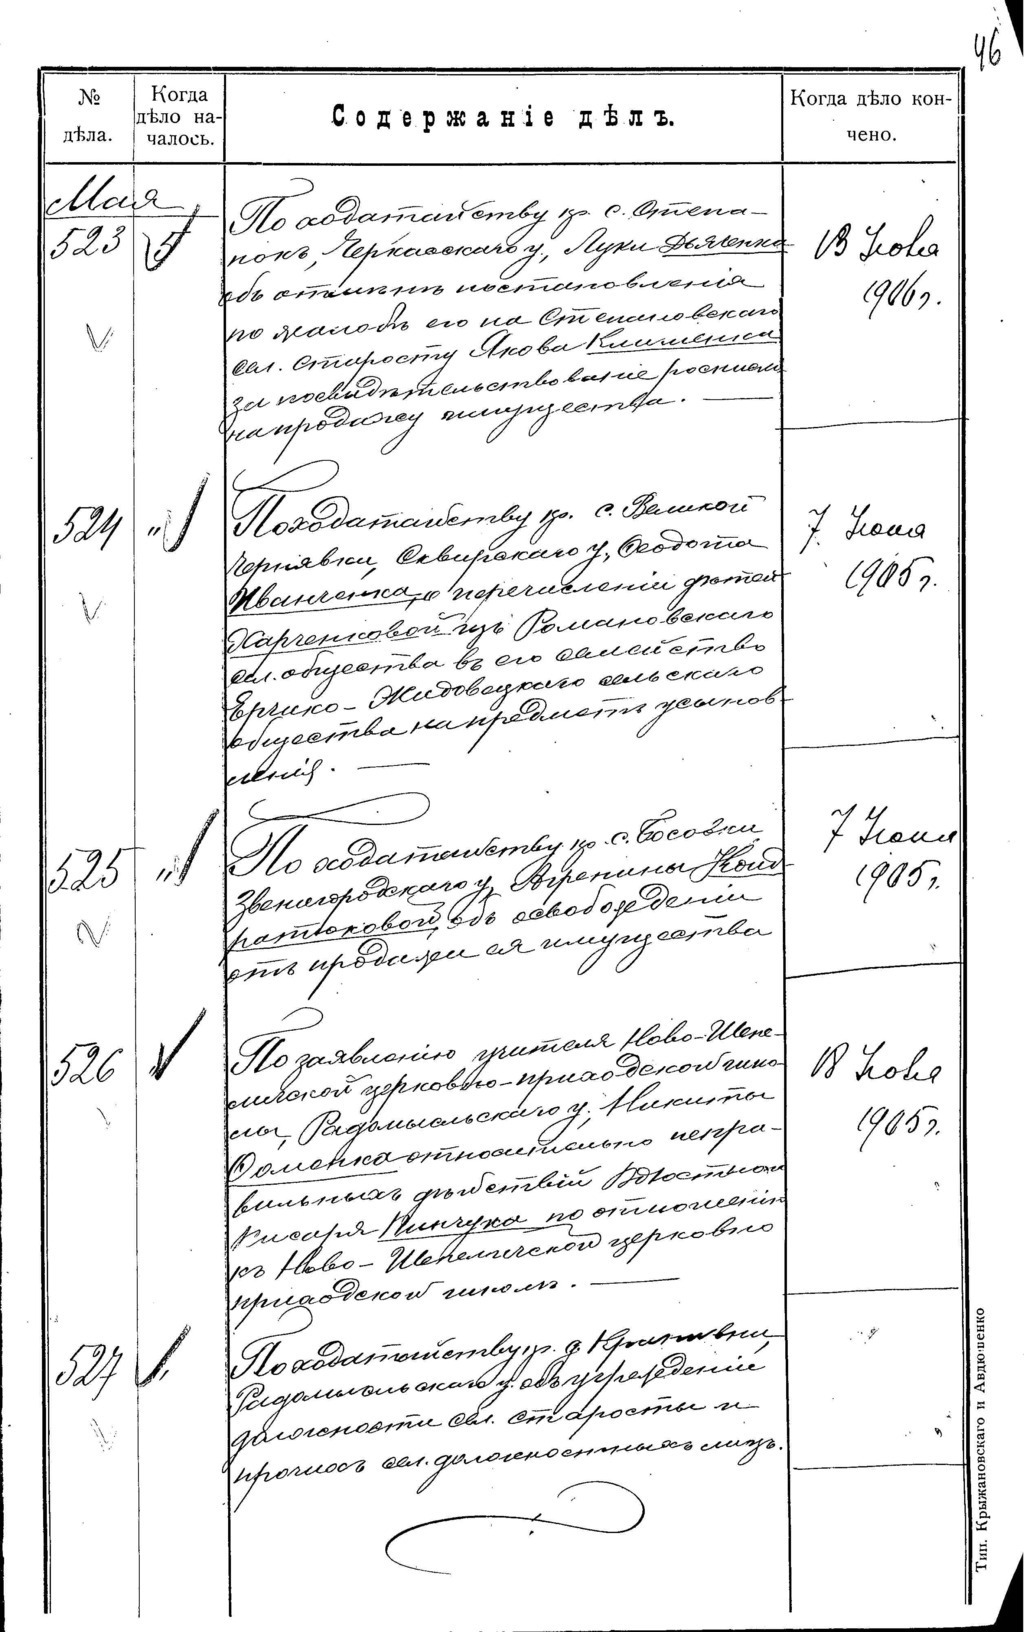 46
№ дѣла.
Когда дѣло началось.
Содержаніе дѣлъ.
Когда дѣло кончено.
Мая
523 5
По ходатайству кр. с. Степа-
нокъ, Черкасскаго у., Луки Дьяченко
объ отмѣнѣ постановленія
по жалобѣ его на Степановскаго
сел. старосту Якова Клименка
за посвидѣтельствованіе росписки
на продажу имущества. —
13 Ноября
1906 г.
524 "
По ходатайству кр. с. Великой
Чернявки, Сквирскаго у., Ѳеодота
Иванченка, о перечисленіи дѣтей
Харченковой изъ Романовскаго
сел. общества въ его семейство
Ерчико-Жидовецкаго сельскаго
общества на предметъ усынов-
ленія. —
7 Іюня
1905 г.
525 "
По ходатайству кр. с. Босовки
Звенигородскаго у. Агрепины Конд-
ратюковой, объ освобожденіи
отъ продажи ея имущества
7 Іюня
1905 г.
526
По заявленію учителя Ново-Шепе-
личской церковно-приходской шко-
лы, Радомысльскаго у., Никиты
Фоменка относительно непра-
вильныхъ дѣйствій Волостнаго
Писаря Пинчука по отношенію
къ Ново-Шепеличской церковно
приходской школѣ. —
18
1905 г.
527
По ходатайству кр. д.
Радомысльскаго у. объ учрежденіи
должности сел. старосты и
прочихъ сел. должностныхъ лицъ.
Тип. Крыжановскаго и Авдюшенко